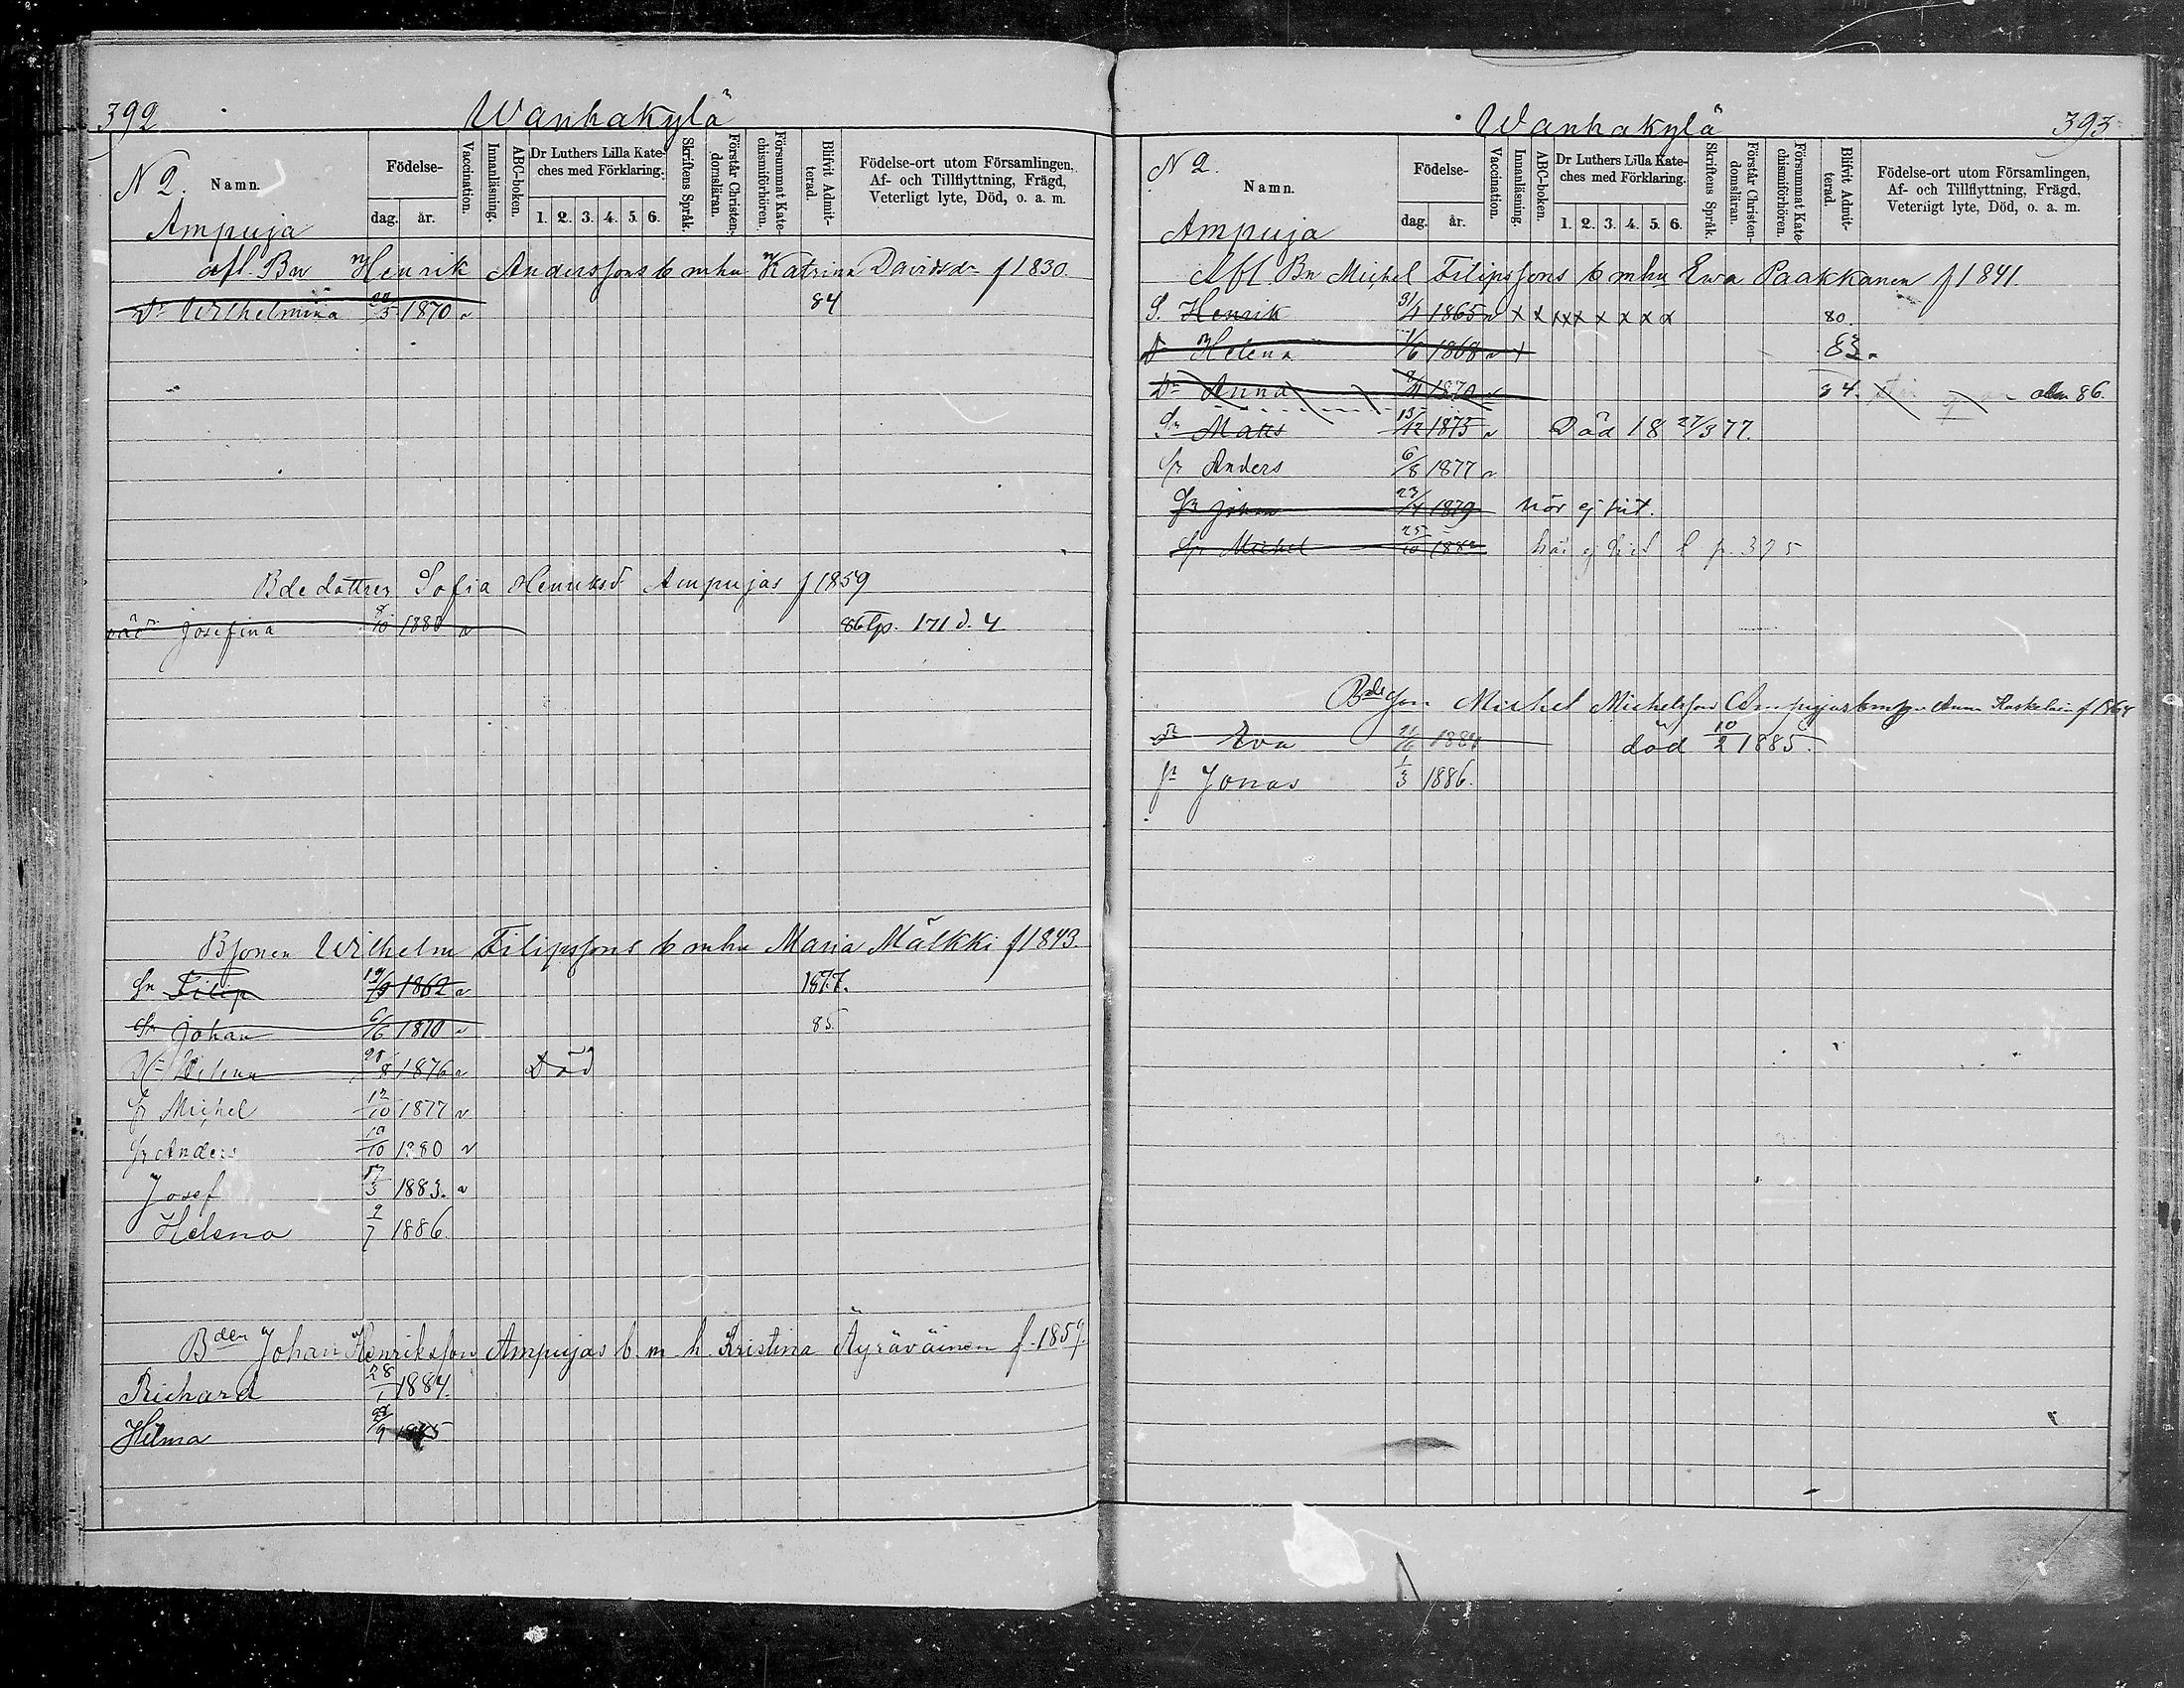 392
Wanhakylä
N 2. Namn.
Födelse- dag. år.
Vaccination.
Innanläsning.
ABC-boken.
Dr Luthers Lilla Kate-
ches med Förklaring.
1. 2. 3. 4. 5. 6.
Skriftens Språk.
Förstår Christen-
domsläran.
Försummat Kate-
chismiförhören.
Blifvit Admit-
terad.
Födelse-ort utom Församlingen,
Af- och Tillflyttning, Frägd,
Veterligt lyte, Död, o. a. m.
Ampuja
afl. Bn Henrik Anderssons b mhu Katrina Davidsdr f 1830.
Dr Wilhelmina 1870 84
Bde dottren Sofia Henriksd Ampujas f 1859
Josefina 8/10 1880 86 171 d. 4
Bsonen Wilhelm Filipssons b mhu Maria Mälkki f 1843.
Sn Filip 1862 1877.
Sn Johan 6/6 1870 85.
Helena 1876 Död
Sn Michel 12/10 1877
Sn Anders 10/10 1880
Josef 17/3 1883.
Helena 9/7 1886.
Bden Johan Henriksson Ampujas b. m. h. Kristina Äyräväinen f. 1859.
Richard 28/1 1884.
Hilma 1885
Wanhakylä
393
N 2.
Namn.
Födelse- dag. år.
Vaccination.
Innanläsning.
ABC-boken.
Dr Luthers Lilla Kate-
ches med Förklaring.
1. 2. 3. 4. 5. 6.
Skriftens Språk.
Förstår Christen-
domsläran.
Försummat Kate-
chismiförhören.
Blifvit Admit-
terad.
Födelse-ort utom Församlingen,
Af- och Tillflyttning, Frägd,
Veterligt lyte, Död, o. a. m.
Ampuja
Afl. Bn Michel Filipssons b mhu Ewa Paakkanen f 1841.
S. Henrik 1865 x x xxx x x x x 80.
Helena 1/6 1868 83.
Dr Anna 1870 84. 86.
Sn Matts 13/12 1875 Död 18 27/3 77.
Sn Anders 6/8 1877
Sn Johan 23/4 1879 hör ej hit.
Sn Michel 25/10 1882 hör ej hit p. 375
Bde Son Michel Michelsson Ampujas
Eva 1884 död 10/2 1885.
Sn Jonas 1/3 1886.